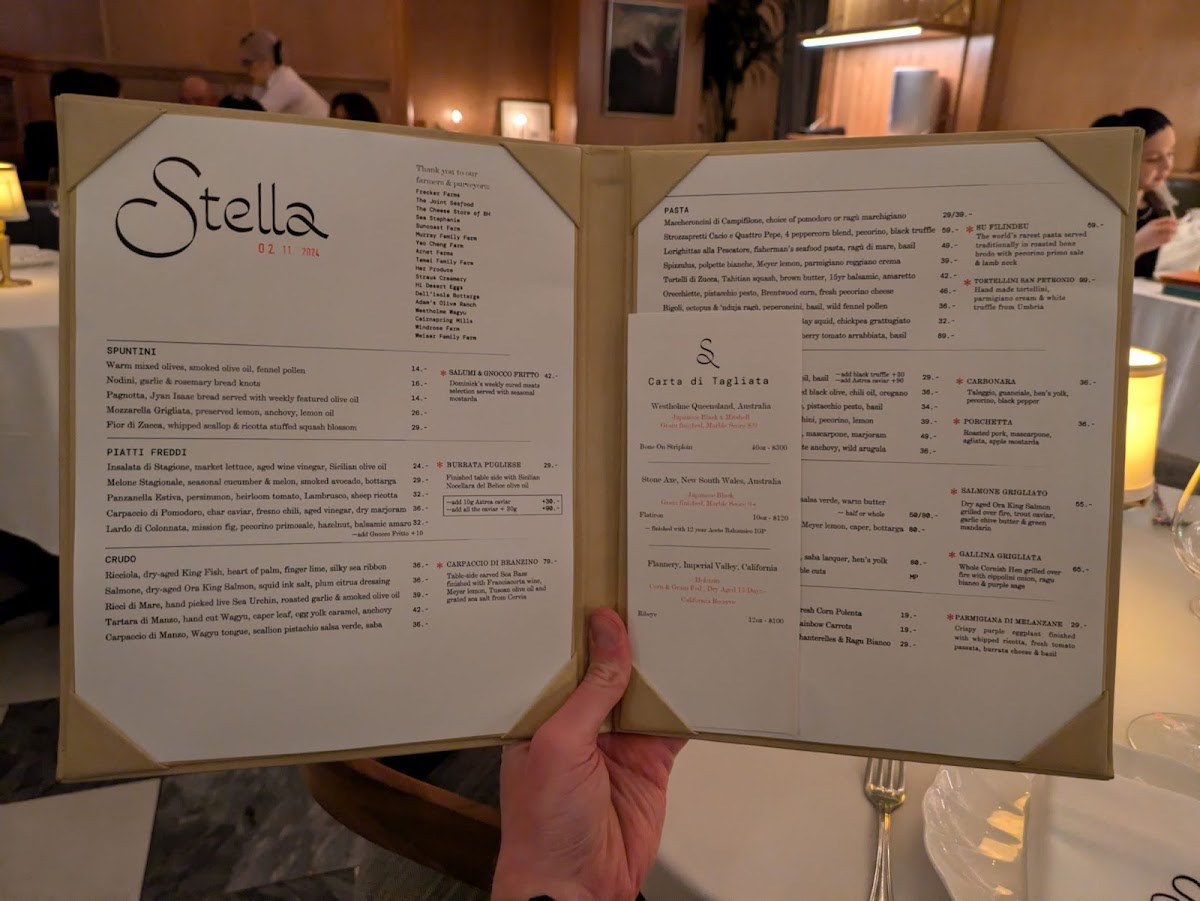 Stella
02 11 2024
Thank you to our
farmers & purveyors
Frecker Farms
The Joint Seafood
The Cheese Store of BH
Sea Stephanie
Suncoast Farm
Murray Family Farm
Yao Cheng Farm
Kenter Farms
Tamai Family Farm
Her Produce
Straus Creamery
Hi Desert Eggs
Dall'isola Bottarga
Adam's Olive Ranch
Westholme Wagyu
Cairnspring Mills
Windrose Farm
Weiser Family Farm
SPUNTINI
Warm mixed olives, smoked olive oil, fennel pollen 14.-
Nodini, garlic & rosemary bread knots 16.-
Pagnotta, Jyan Isaac bread served with weekly featured olive oil 14.-
Mozzarella Grigliata, preserved lemon, anchovy, lemon oil 26.-
Fior di Zucca, whipped scallop & ricotta stuffed squash blossom 29.-
* SALUMI & GNOCCO FRITTO 42.-
Dominick's weekly cured meats
selection served with seasonal
mostarda
PIATTI FREDDI
Insalata di Stagione, market lettuce, aged wine vinegar, Sicilian olive oil 24.-
Melone Stagionale, seasonal cucumber & melon, smoked avocado, bottarga 29.-
Panzanella Estiva, persimmon, heirloom tomato, Lambrusco, sheep ricotta 32.-
Carpaccio di Pomodoro, char caviar, fresno chili, aged vinegar, dry marjoram 36.-
Lardo di Colonnata, mission fig, pecorino primosale, hazelnut, balsamic amaro 32.-
—add Gnocco Fritto +10
* BURRATA PUGLIESE 29.-
Finished table side with Sicilian
Nocellara del Belice olive oil
—add 10g Astrea caviar +30.-
—add all the caviar + 30g +90.-
CRUDO
Ricciola, dry-aged King Fish, heart of palm, finger lime, silky sea ribbon 36.-
Salmone, dry-aged Ora King Salmon, squid ink salt, plum citrus dressing 36.-
Ricci di Mare, hand picked live Sea Urchin, roasted garlic & smoked olive oil 39.-
Tartara di Manzo, hand cut Wagyu, caper leaf, egg yolk caramel, anchovy 42.-
Carpaccio di Manzo, Wagyu tongue, scallion pistachio salsa verde, saba 36.-
* CARPACCIO DI BRANZINO 79.-
Table-side carved Sea Bass
finished with Franciacorta wine,
Meyer lemon, Tuscan olive oil and
grated sea salt from Cervia
PASTA
Maccheroncini di Campifilone, choice of pomodoro or ragù marchigiano 29/39.-
Strozzapretti Cacio e Quattro Pepe, 4 peppercorn blend, pecorino, black truffle 59.-
Lorighittas alla Pescatore, fisherman's seafood pasta, ragù di mare, basil 49.-
Spizzulus, polpette bianche, Meyer lemon, parmigiano reggiano crema 39.-
Tortelli di Zucca, Tahitian squash, brown butter, 15yr balsamic, amaretto 42.-
Orecchiette, pistachio pesto, Brentwood corn, fresh pecorino cheese 46.-
Bigoli, octopus & 'nduja ragù, peperoncini, basil, wild fennel pollen 36.-
squid, chickpea grattugiato 32.-
tomato arrabbiata, basil 69.-
* SU FILINDEU 59.-
The world's rarest pasta served
traditionally in roasted bone
brodo with pecorino primo sale
& lamb neck
* TORTELLINI SAN PETRONIO 99.-
Hand made tortellini,
parmigiano cream & white
truffle from Umbria
Carta di Tagliata
Westholme Queensland, Australia
Japanese Black x Mitchell
Grain finished, Marble Score 8/9
Bone On Striploin 40oz - $300
Stone Axe, New South Wales, Australia
Japanese Black
Grain finished, Marble Score 9+
Flatiron 10oz - $120
— finished with 12 year Aceto Balsamico IGP
Flannery, Imperial Valley, California
Holstein
Corn & Grass Fed, Dry Aged 15 Days
California Reserve
Ribeye 12oz - $100
oil, basil —add black truffle +30 29.-
—add Astrea caviar +90
black olive, chili oil, oregano 36.-
pistachio pesto, basil 34.-
pecorino, lemon 39.-
mascarpone, marjoram 49.-
anchovy, wild arugula 36.-
* CARBONARA 36.-
Taleggio, guanciale, hen's yolk,
pecorino, black pepper
* PORCHETTA 36.-
Roasted pork, mascarpone,
agliata, apple mostarda
salsa verde, warm butter
— half or whole 50/80.-
Meyer lemon, caper, bottarga 80.-
saba lacquer, hen's yolk 60.-
cuts MP
* SALMONE GRIGLIATO 55.-
Dry aged Ora King Salmon
grilled over fire, trout caviar,
garlic chive butter & green
mandarin
* GALLINA GRIGLIATA 65.-
Whole Cornish Hen grilled over
fire with cippolini onion, ragu
bianco & purple sage
Fresh Corn Polenta 19.-
Rainbow Carrots 19.-
Chanterelles & Ragu Bianco 29.-
* PARMIGIANA DI MELANZANE 29.-
Crispy purple eggplant finished
with whipped ricotta, fresh tomato
passata, burrata cheese & basil